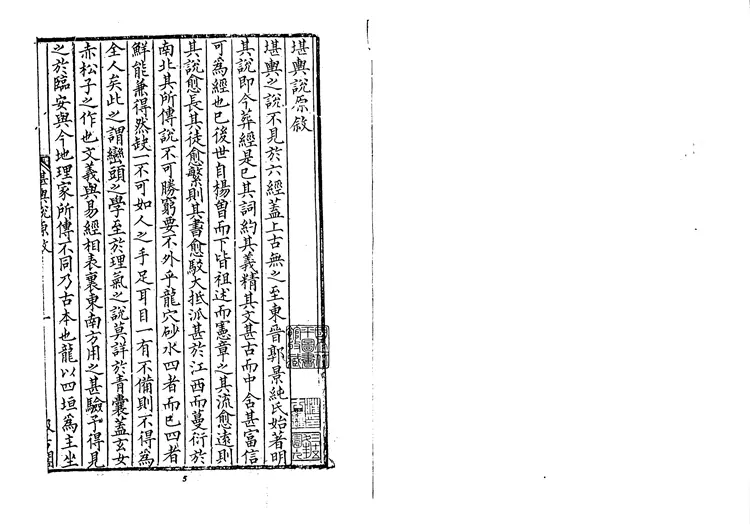 堪輿說原敘
堪輿之說不見於六經蓋上古無之至東晉郭景純氏始著明
其說即今葬經是已其詞約其義精其文甚古而中含甚富信
可為經也已後世自楊曾而下皆祖述而憲章之其流愈遠則
其說愈長其徒愈繁則其書愈駁大抵派甚於江西而蔓衍於
南北其所傳說不可勝窮要不外乎龍穴砂水四者而已四者
鮮能兼得然缺一不可如人之手足耳目一有不備則不得為
全人矣此之謂巒頭之學至於理氣之說莫詳於青囊蓋玄女
赤松子之作也文義與易經相表裏東南方用之甚驗予得見
之於臨安與今地理家所傳不同乃古本也龍以四垣為主坐
堪輿說原敘
一
5